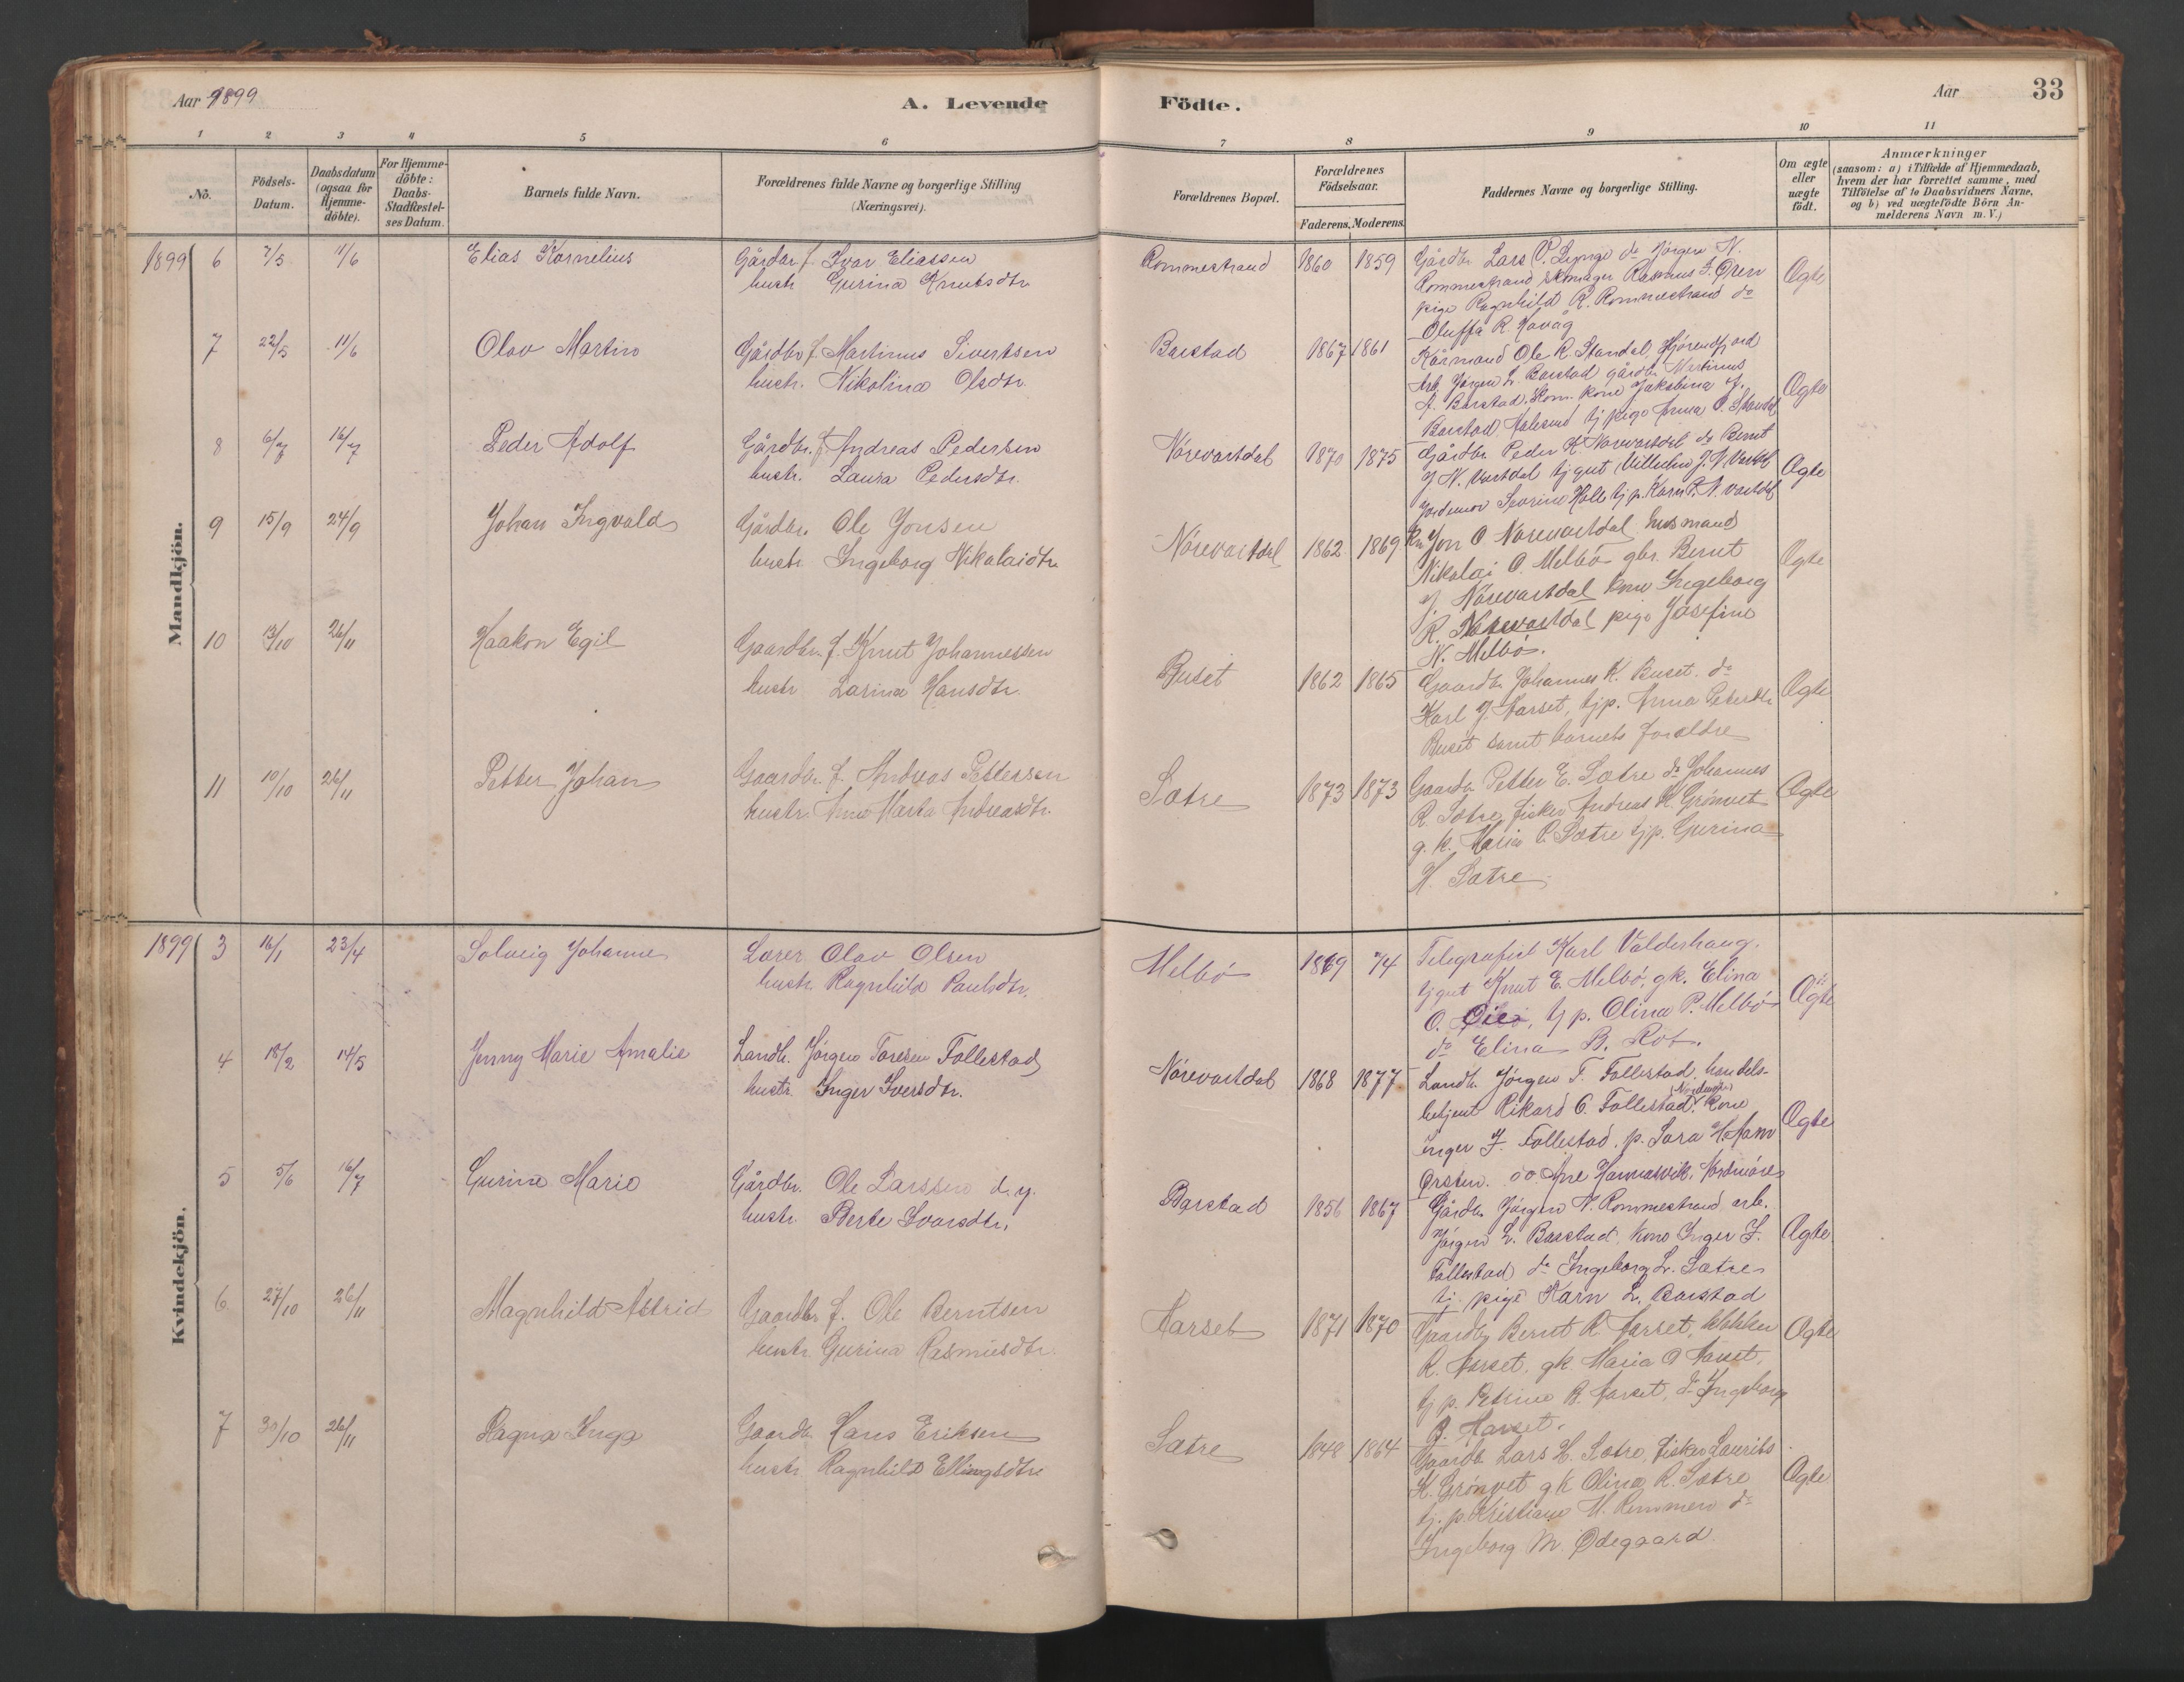 Aar 1899
A. Levende
Födte.
Aar
33
1 2 3 4 5 6 7 8 9 10 11
No.
Födsels-Datum.
Daabsdatum (ogsaa for Hjemme-döbte).
For Hjemme-döbte: Daabs-Stadfæstel-ses Datum.
Barnets fulde Navn.
Forældrenes fulde Navne og borgerlige Stilling
(Næringsvei).
Forældrenes Bopæl.
Forældrenes Födselsaar.
Faderens. Moderens.
Faddernes Navne og borgerlige Stilling.
Om ægte eller uægte födt.
Anmærkninger
(saasom: a) i Tilfælde af Hjemmedaab,
hvem der har forrettet samme, med
Tilföielse af to Daabsvidners Navne,
og b) ved uægtefödte Börn An-
melderens Navn m. V.)
Mandkjön.
1899 6 7/5 11/6 Elias Kornelius
Gårdbr. f. Ivar Eliassen
hustr. Gurina Knutsdtr.
Rommestrand 1860 1859
Gårdbr. Lars P. Lyngø do Jørgen N.
Rommestrand skomager Rasmus I. Øren
pige Ragnhild R. Rommestrand do
Oluffa R. Havåg
Ægte
7 22/5 11/6 Olav Martin
Gårdbr. f. Martinus Sivertsen
hustr. Nikolina Olsdtr.
Barstad 1867 1861
Kårmand Ole R. Standal, Hjørendfjord
Arb. Jørgen L. Barstad gårdbr. Martinus
A. Barstad, kone Jakobina
Barstad Aalesund tj pige Anna O. Standal
Ægte
8 6/7 16/7 Peder Adolf
Gårdbr. f. Andreas Pedersen
hustr. Laura Pedersdtr.
Nörevartdal 1870 1875
Gårdbr. Peder K Nörevartdal do Bernt
J N. Vartdal tj gut Villhelm J. N Vartdal
Jordmor Severine Holle tj p. Karn P. N. Vartdal
Ægte
9 15/9 24/9 Johan Ingvald
Gårdbr. Ole Jonsen
hustr. Ingeborg Nikolaidtr.
Nörevartdal 1862 1869
Jon O Nörevartdal husmand
Nikolai O. Melbö gbr. Bernt
J. Nörevartdal kone Ingeborg
R. Nörevartdal pige Josefine
N. Melbö.
Ægte
10 13/10 26/11 Haakon Egil
Gaardbr. f. Knut Johannessen
hustr. Larina Hansdtr.
Buset 1862 1865
Gaardbr. Johannes K. Buset. do
Karl J. Aarset, tjp. Anna Petersdtr
Buset samt barnets forældre
Ægte
11 10/10 26/11 Petter Johan
Gaardbr. f. Andreas Pettersen
hustr. Anne Marta Andreasdtr.
Sætre 1873 1873
Gaardbr. Petter E. Sætre do Johannes
R. Sætre, fisker Andreas K. Grönvet
g. k. Maria P. Sætre tjp. Gurina
H. Sætre
Ægte
Kvindekjön.
1899 3 16/1 23/4 Solveig Johanne
Lærer Olav Olsen
hustr. Ragnhild Paulsdtr.
Melbö 1869 74
Telegrafist Karl Valderhaug.
tj gut Knut E. Melbö, gk. Elina
O. Öie, tj p. Olina P. Melbö
do Elina B. Rot.
Ægte
4 18/2 14/5 Jenny Marie Amalie
Landh. Jörgen Toresen Follestad
hustr. Inger Iversdtr.
Nörevartdal 1868 1877
Landh. Jörgen T. Follestad, handels-
betjent Rikard C. Follestad, kone
Inger I. Follestad, p. Sara H Aam
Ørsten. do Ane Hamnesvik, Nordmöre
Ægte
5 5/6 16/7 Gurine Marie
Gårdbr. Ole Larssen d. y.
hustr. Berte Ivarsdtr.
Barstad 1856 1867
Gårdbr. Jörgen N. Rommestrand, arb.
Jörgen L. Barstad, kone Inger I.
Follestad do Ingeborg L. Sætre
tj. pige Karn L. Barstad
Ægte
6 27/10 26/11 Magnhild Astrid
Gaardbr. f. Ole Berntsen
hustr. Gurina Rasmusdtr.
Aarset 1871 1870
Gaardbr. Bernt R. Aarset,
R. Aarset, gk Maria O Aarset,
tj p. Petrine B. Aarset, do Ingeborg
B. Aarset.
Ægte
7 30/10 26/11 Ragna Inga
Gaardbr. Hans Eriksen
hustr. Ragnhild Ellingsdtr
Sætre 1848 1864
Gaardb. Lars H. Sætre, fisker Laurits
K. Grönvet gk Olina R. Sætre
tj. p. Kristiane M. Remmen do
Ingeborg M. Ødegaard.
Ægte